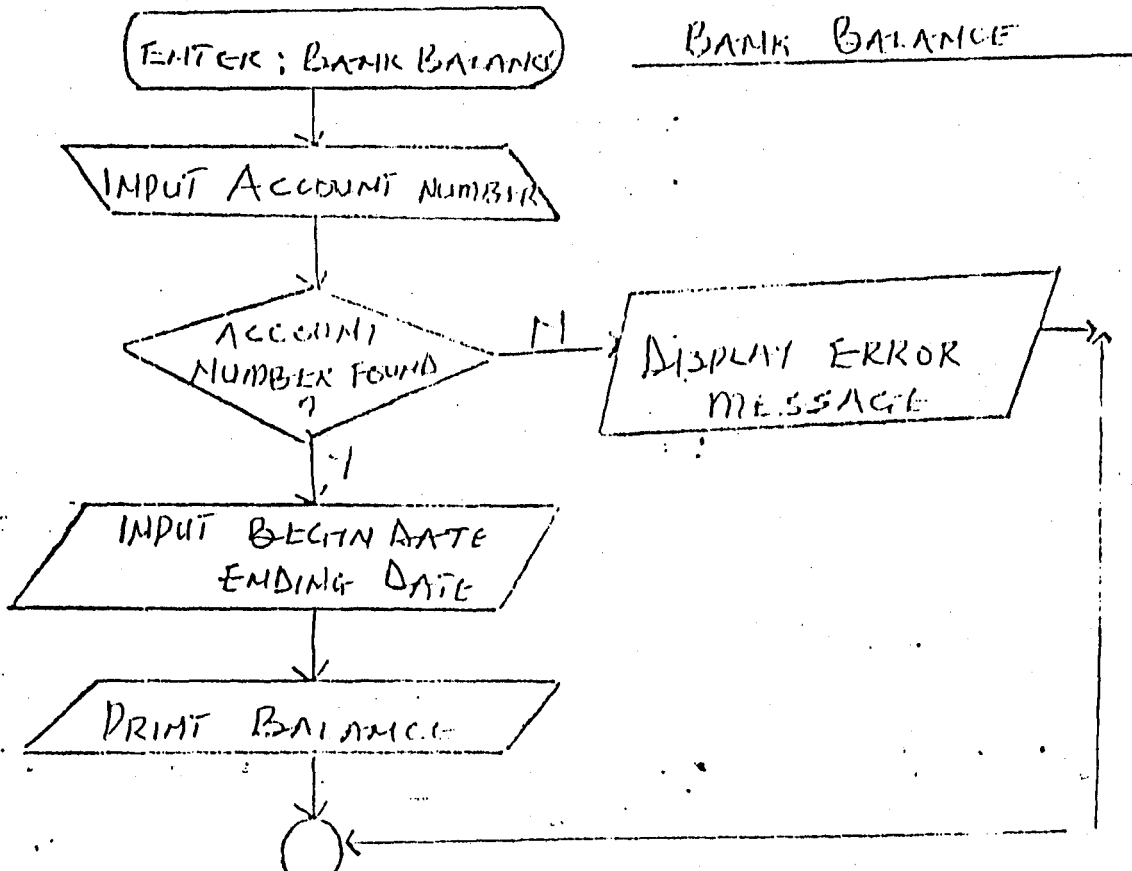 BANK BALANCE
ENTER: BANK BALANCE
INPUT ACCOUNT NUMBER
ACCOUNT
NUMBER FOUND
?
N
DISPLAY ERROR
MESSAGE
Y
INPUT BEGIN DATE
ENDING DATE
PRINT BALANCE